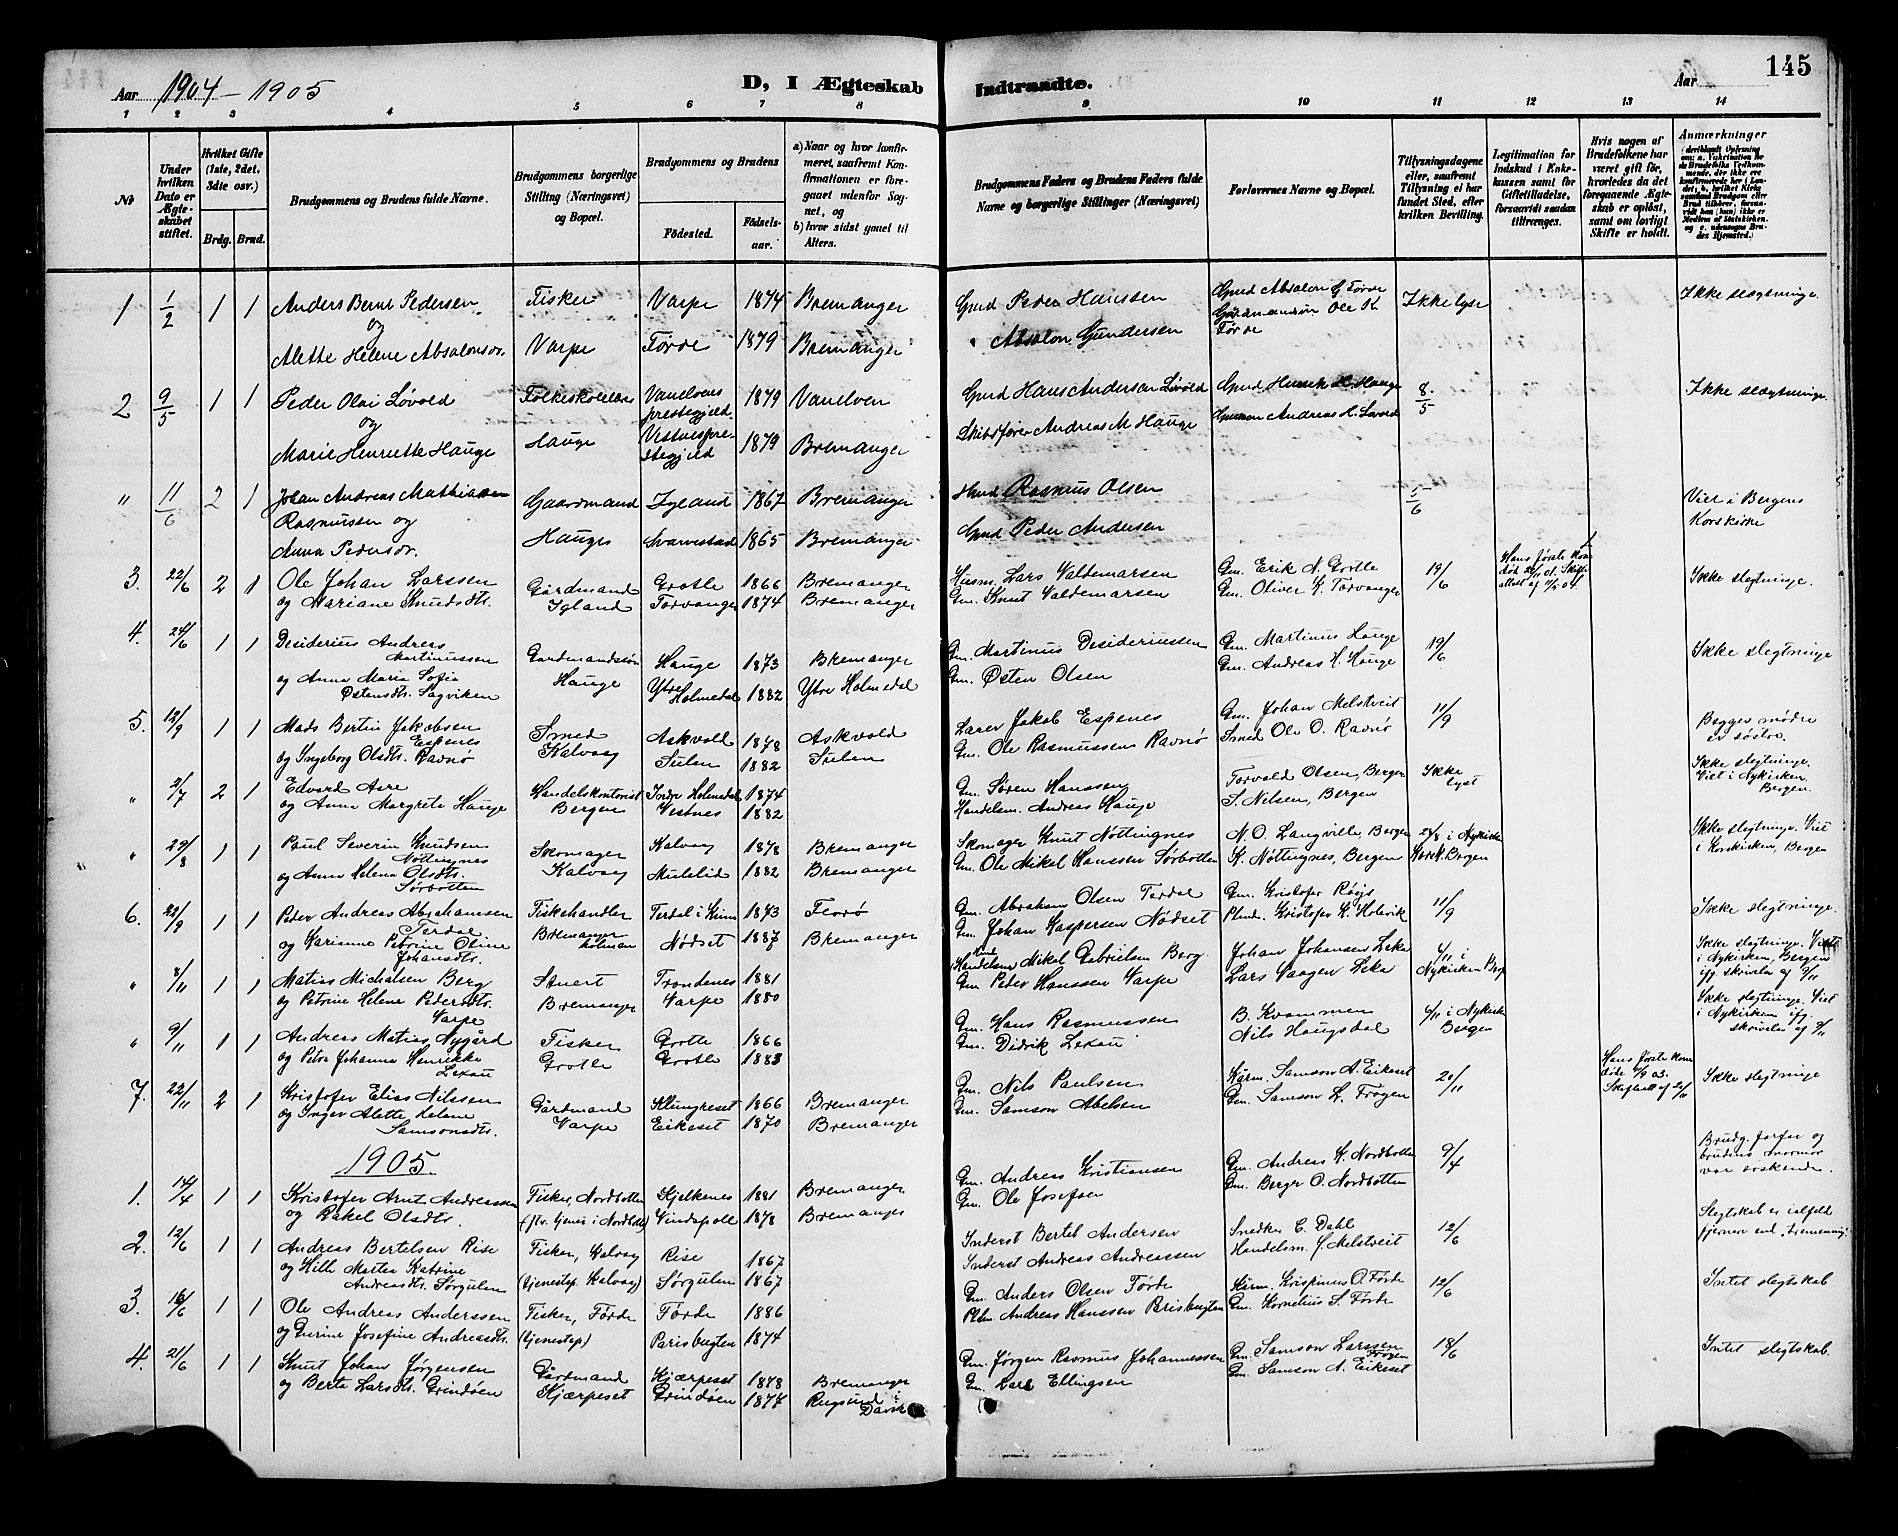 145
Aar 1904 - 1905
D, I Ægteskab Indtraadte.
Aar
1 2 3 4 5 6 7 8 9 10 11 12 13 14
No
Under hvilken Dato er Ægteskabet stiftet.
Hvilket Gifte (1ste, 2det, 3die osv.)
Brdg. Brud.
Brudgommens og Brudens fulde Navne.
Brudgommens borgerlige Stilling (Næringsvei) og Bopæl.
Brudgommens og Brudens
Fødested.
Fødselsaar.
a) Naar og hvor konfirmeret, saafremt Konfirmationen er foregaaet udenfor Sognet, og
b) hvor sidst gaaet til Alters.
Brudgommens Faders og Brudens Faders fulde Navne og borgerlige Stillinger (Næringsvei)
Forlovernes Navne og Bopæl.
Tillysningsdagene eller, saafremt Tillysning ei har fundet Sted, efter hvilken Bevilling.
Legitimation for Indskud i Enkekassen samt for Giftetilladelse, forsaavidt saadan tiltrænges.
Hvis nogen af Brudefolkene har været gift før, hvorledes da det foregaaende Ægteskab er opløst, samt om lovligt Skifte er holdt.
Anmærkninger
1 1/2 1 1 Anders Bernt Pedersen Fisker Varpe 1874 Bremanger Gmd Peder Hanssen Gmd Absalon G Førde Ikke lyst Ikke slægtninge.
og Gårdmandssøn Ole K Førde
Alette Helene Absalonsdr. Varpe Førde 1879 Bremanger " Absalon Gundersen
2 9/5 1 1 Peder Olai Løvold Folkeskolelærer Vanelvens prestegjeld 1879 Vanelven Gmd Hans Andersen Løvold Gmd Henrik H. Hauge 8/5 Ikke slægtninge.
og
Marie Henriette Hauge Hauge Vestnes prestegjeld 1879 Bremanger Skibsfører Andreas M Hauge
" 11/6 2 1 Johan Andreas Mathiasen Gaardmand Igland 1867 Bremanger Hmd Rasmus Olsen 5/6 Viet i Bergens Korskirke
Rasmussen og
Anna Pedersdr. Hauges 1865 Bremanger Gmd Peder Andersen
3. 22/6 2 1 Ole Johan Larssen Gårdmand Grotle 1866 Bremanger Husm. Lars Valdemarsen Gm. Erik N. Grotle 19/6 Ikke slegtninge.
og Mariane Knudsdtr. Igland Torvanger 1874 Bremanger Gm. Knut Valdemarsen Gm. Oliver K. Torvanger
4. 24/6 1 1 Desiderius Andreas Martinussen Gårdmandssøn Hauge 1873 Bremanger Gm. Martinus Desideriussen Gm. Martinus Hauge 19/6 Ikke slegtninge
og Anna Maria Sofia Østensdtr. Sagviken Hauge Ytre Holmedal 1882 Ytre Holmedal Gm. Østen Olsen Gm. Andreas H. Hauge
5. 12/9 1 1 Mads Bertin Jakobsen Espenes Smed Askvold 1878 Askvold Lærer Jakob Espenes Gm. Johan Melstveit 11/9 Begges mødre er søstre.
og Ingeborg Olsdtr. Ravnø Kalvaag Sulen 1882 Sulen Gm. Ole Rasmussen Ravnø Smed Ole O. Ravnø
" 2/7 2 1 Edvard Aare Handelskontorist Indre Holmedal 1874 Gm. Søren Hanssen Torvald Olsen, Bergen Ikke lyst Ikke slegtninge. Viet i Nykirken Bergen.
og Anna Margrete Hauge Bergen Vestnes 1882 Handelsm. Andreas Hauge S. Nilsen, Bergen
" 29/8 1 1 Paul Severin Knudsen Nøttingnes Skomager Kalvaag 1878 Bremanger Skomager Knut Nøttingnes N. O. Langville, Bergen 28/8 i Nykirken Korsk. Bergen Ikke slegtninge. Viet i Korskirken, Bergen
og Anna Helena Olsdtr. Sørbotten Kalvaag Mulelid 1882 Bremanger Gm. Ole Mikal Hanssen Sørbotten K. Nøttingnes, Bergen
6. 22/9 1 1 Peder Andreas Abrahamsen Terdal Fiskehandler Terdal i Kinn 1873 Florø Gm. Abraham Olsen Terdal Gm. Kristofer Røys 11/9 Ikke slegtninge.
og Karianne Petrine Oline Johansdtr. Bremangerholmen Nødset 1887 Bremanger Gm. Johan Kaspersen Nødset Plmd. Kristofer K. Holevik
" 8/11 1 1 Matias Michalsen Berg Stuert Trondenes 1881 Handelsm. Mikal Gabrielsen Berg Johan Johansen Leka 4/11 i Nykirken Berg Ikke slegtninge. Viet i Nykirken, Bergen ifg. skrivelse af 9/11
og Petrine Helene Pedersdtr. Varpe Bremanger Varpe 1880 Gm. Peder Hanssen Varpe Lars Vaagen Leka
" 9/11 1 1 Andreas Matias Nygård Fisker Grotle 1866 Gm. Hans Rasmussen B. Kvammen 6/11 i Nykirken Bergen Ikke slegtninge. Viet i Nykirken ifg. skrivelse af 9/11
og Petra Johanna Henrikke Lexau Grotle Grotle 1883 Gm. Didrik Lexau Nils Haugsdal
7. 22/11 2 1 Kristofer Elias Nilssen Gårdmand Klungreset 1866 Bremanger Gm. Nils Paulsen Kårm. Samson A. Eikeset 20/11 Hans første kone døde 4/9 03. Ikke slegtninge
og Inger Alette Helene Samsonsdtr. Varpe Eikeset 1870 Bremanger Gm. Samson Abelsen Gm. Samson L. Frøgen
1905.
1. 14/4 1 1 Kristofer Arnt Andreassen Fisker, Nordbotten Kjelkenes 1881 Bremanger Gm. Andreas Kristiansen Gm. Andreas K. Nordbotten 9/4 Brudg. farfar og brudens mormor var søskende.
og Rakel Olsdtr. Vindspoll 1878 Bremanger Gm. Ole Josefsen Gm. Berge O. Nordbotten
2. 12/6 1 1 Andreas Bertelsen Rise Fisker, Kalvaag Rise 1867 Inderst Bertel Andersen Snedker C. Dahl 12/6 Slegtskab er ialfald fjernere end "tremenning"
og Hilli Martea Katrine Andreasdtr. Sørgulen (tjenestep. Kalvaag) Sørgulen 1867 Inderst Andreas Andreassen Handelsm. J. Melstveit
3. 16/6 1 1 Ole Andreas Anderssen Fisker, Førde Førde 1886 Gm. Anders Olsen Førde Kårm. Krispinus O. Førde 12/6 Intet slegtskab
og Gurine Josefine Andreasdtr. (tjenestep) Parisbugten 1874 Plm. Andreas Hanssen Brisbugten Gm. Kornelius S. Førde
4. 21/6 1 1 Knut Johan Jørgensen Gårdmand Kjærpeset 1878 Bremanger Gm. Jørgen Rasmus Johannessen Gm. Samson Larssen Frøgen 18/6 Intet slegtskab.
og Berta Larsdtr. Grindøen Kjærpeset Grindøen 1874 Rugsund i Davik Gm. Lars Ellingsen Gm. Samson A. Eikeset